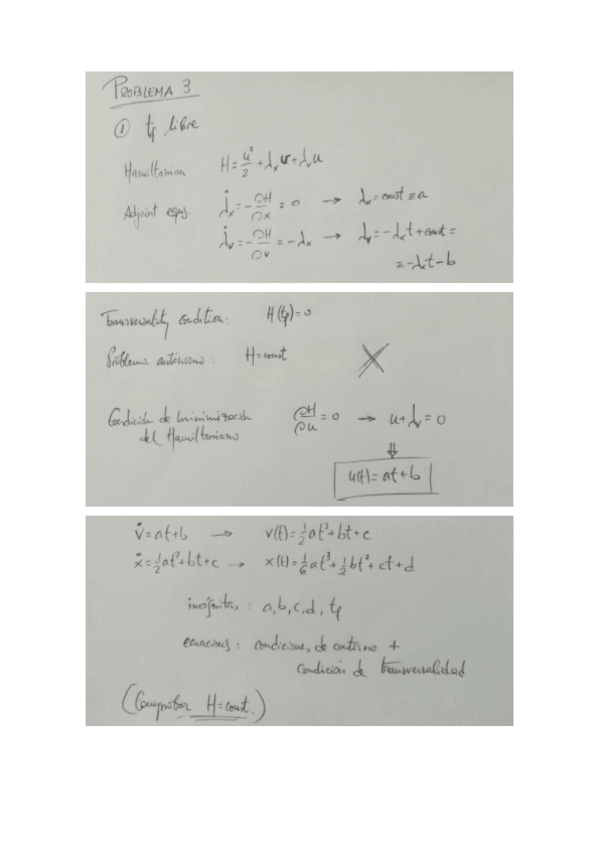 PROBLEMA 3
① tf libre
Hamiltonian H = u²/2 + λx v + λv u
Adjoint eqns. λ̇x = -∂H/∂x = 0 → λx = const ≡ a
λ̇v = -∂H/∂v = -λx → λv = -λx t + const =
= -λx t - b
Transversality condition: H(tf) = 0
Problema autónomo: H = const
Condición de minimización ∂H/∂u = 0 → u + λv = 0
del Hamiltoniano
⇓
u(t) = at + b
v̇ = at + b → v(t) = ½at² + bt + c
ẋ = ½at² + bt + c → x(t) = 1/6 at³ + ½bt² + ct + d
incógnitas: a, b, c, d, tf
ecuaciones: condiciones de contorno +
condición de transversalidad
(Comprobar H = const.)